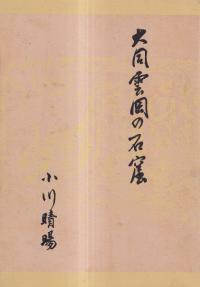 大同雲岡の石窟
小川晴暘